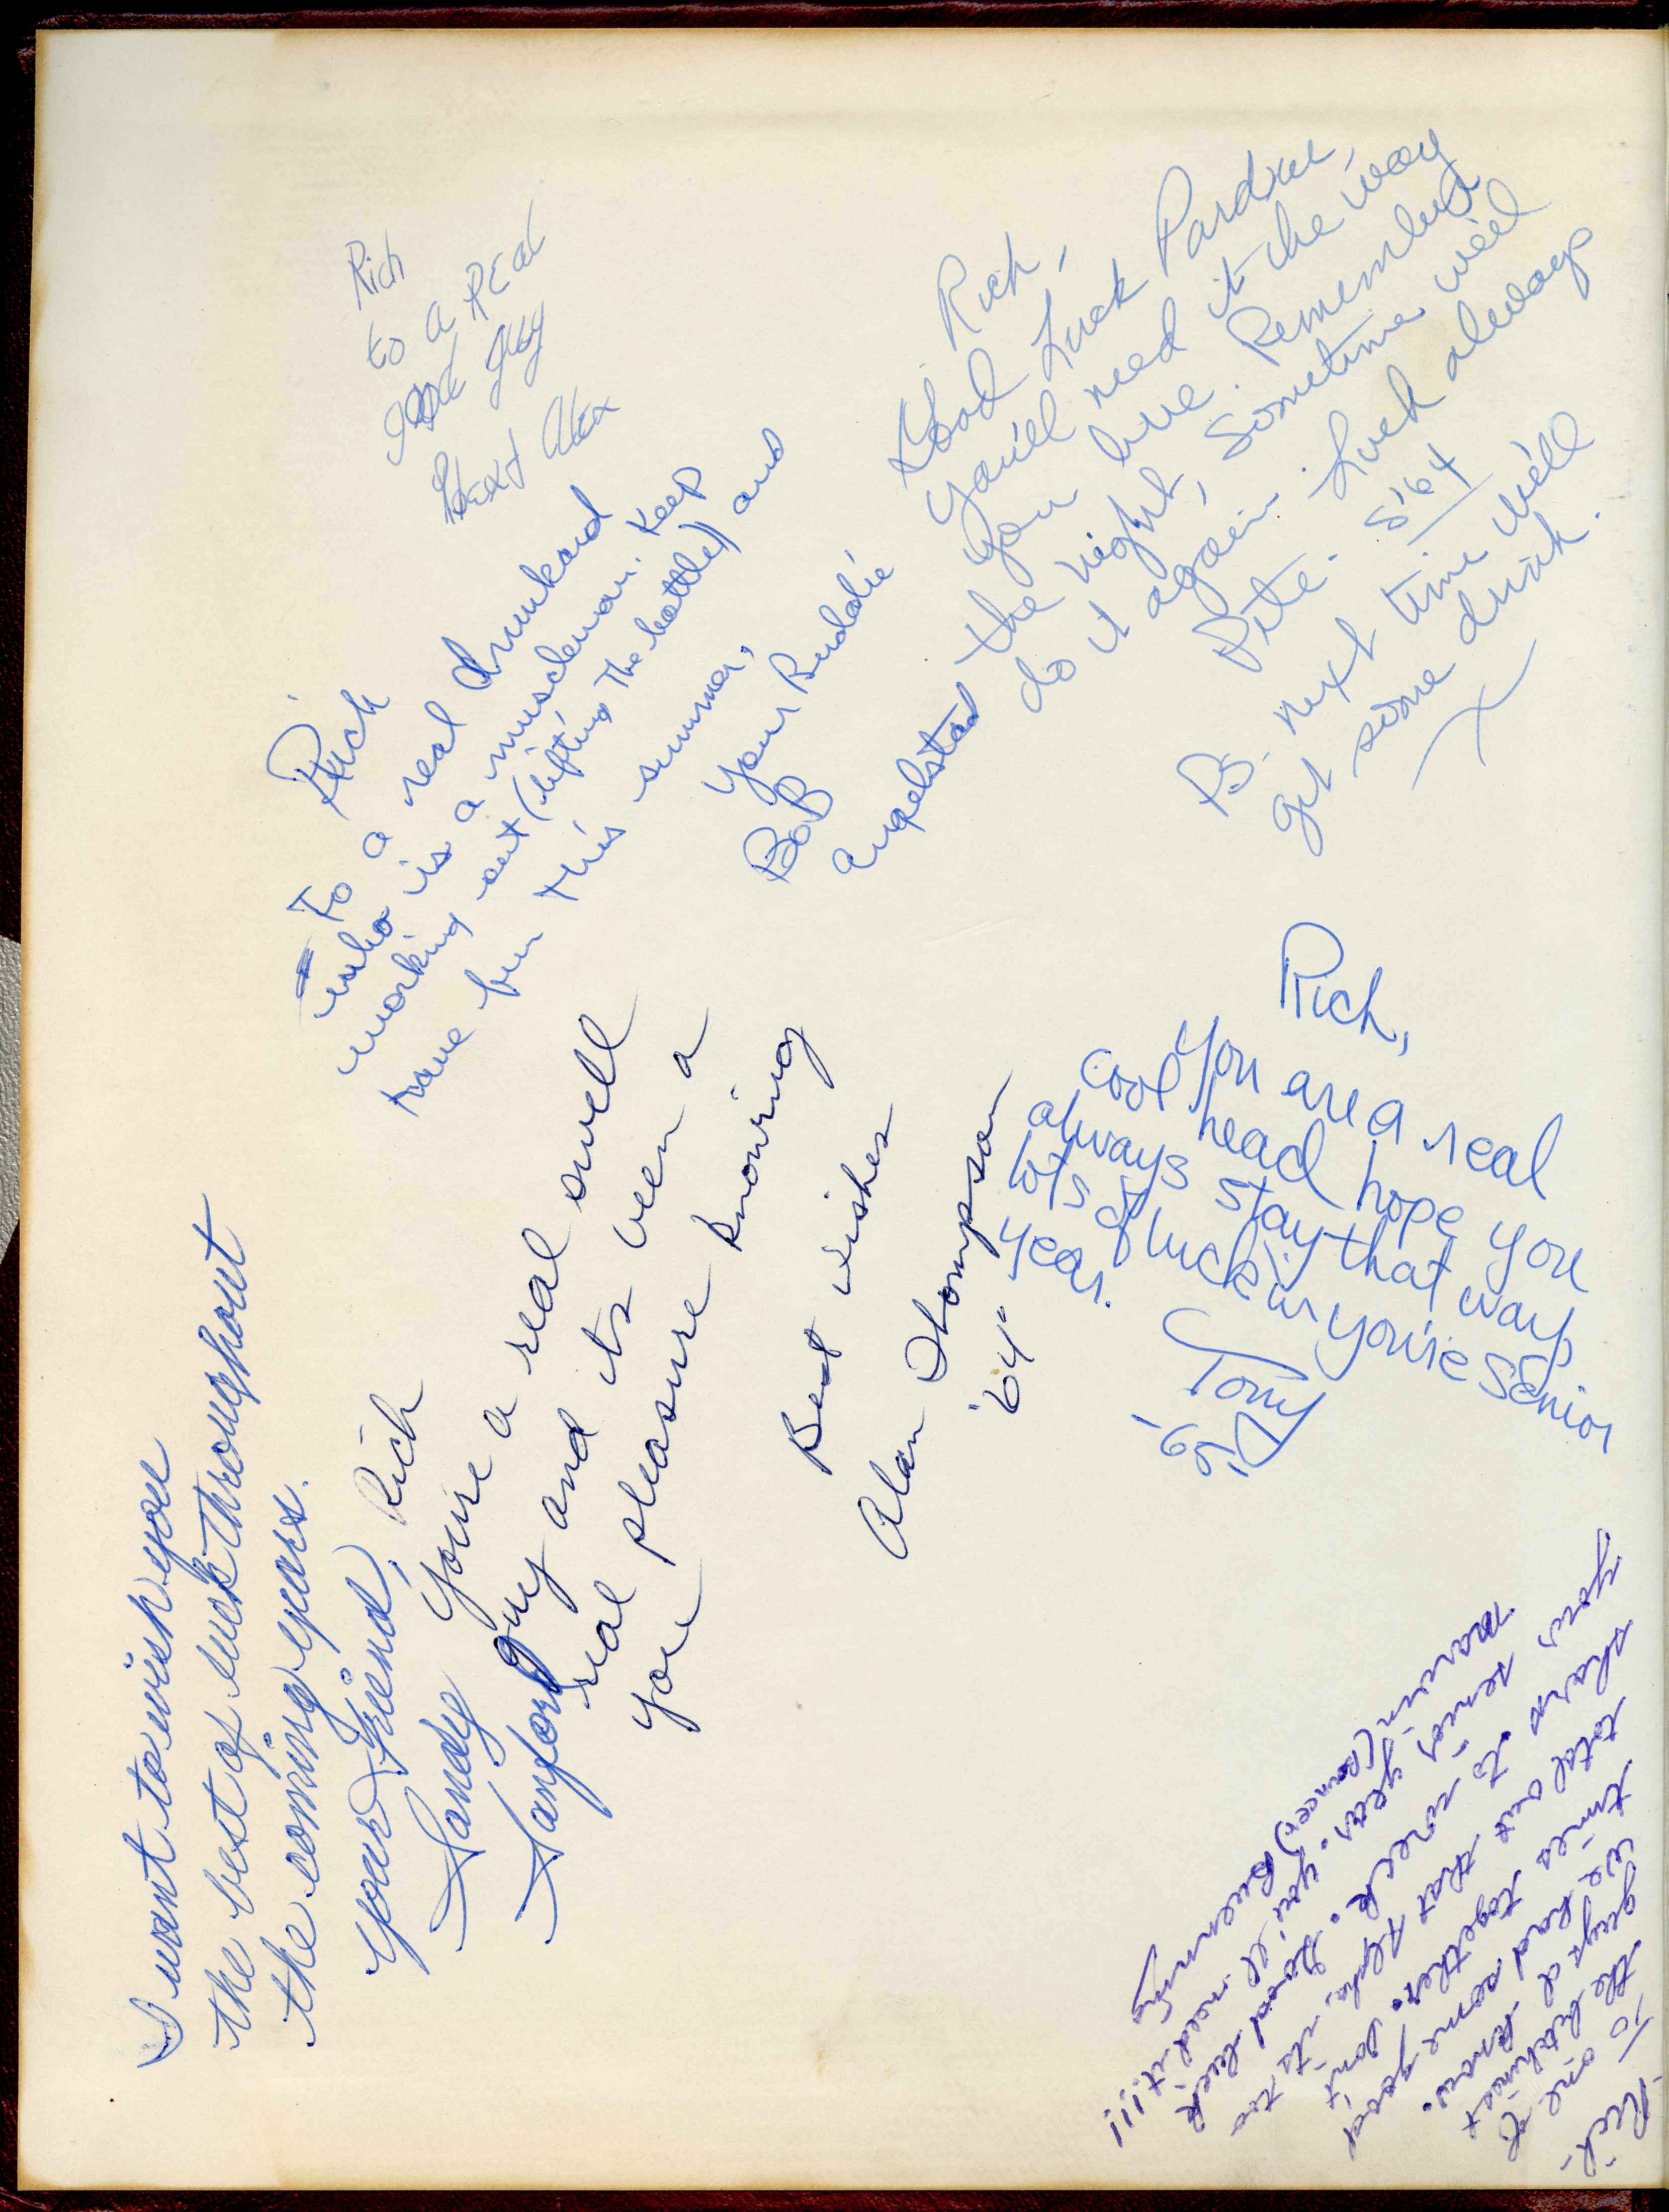 Rich
to a real
good guy
Alex
Rich,
Good Luck Pardner,
you'll need it the way
you live. Remember
the night, sometime we'll
do it again. Luck always
Pete. S'64
P.S. next time we'll
get some drunk.
Rich
To a real drunkard
who is a muscleman. Keep
working out (lifting the bottle) and
have fun this summer,
your Buddie
BoB
Angelstad
Rich,
You are a real
cool head hope you
always stay that way
lots of luck in you're Senior
year.
Tony
'65
Rich
You're a real swell
guy and its been a
real pleasure knowing
you
Best wishes
Alan Thompson
'64"
I want to wish you
the best of luck throughout
the coming years.
Your friend,
Sandy
Sanford
Rick-
To one of
the bitchinest
guys I know.
We had some good
times together. Don't
total out that Alpha, its too
sharp to wreck. Good luck
your senior year. you'll need it!!!
Marvin (Bouncer)